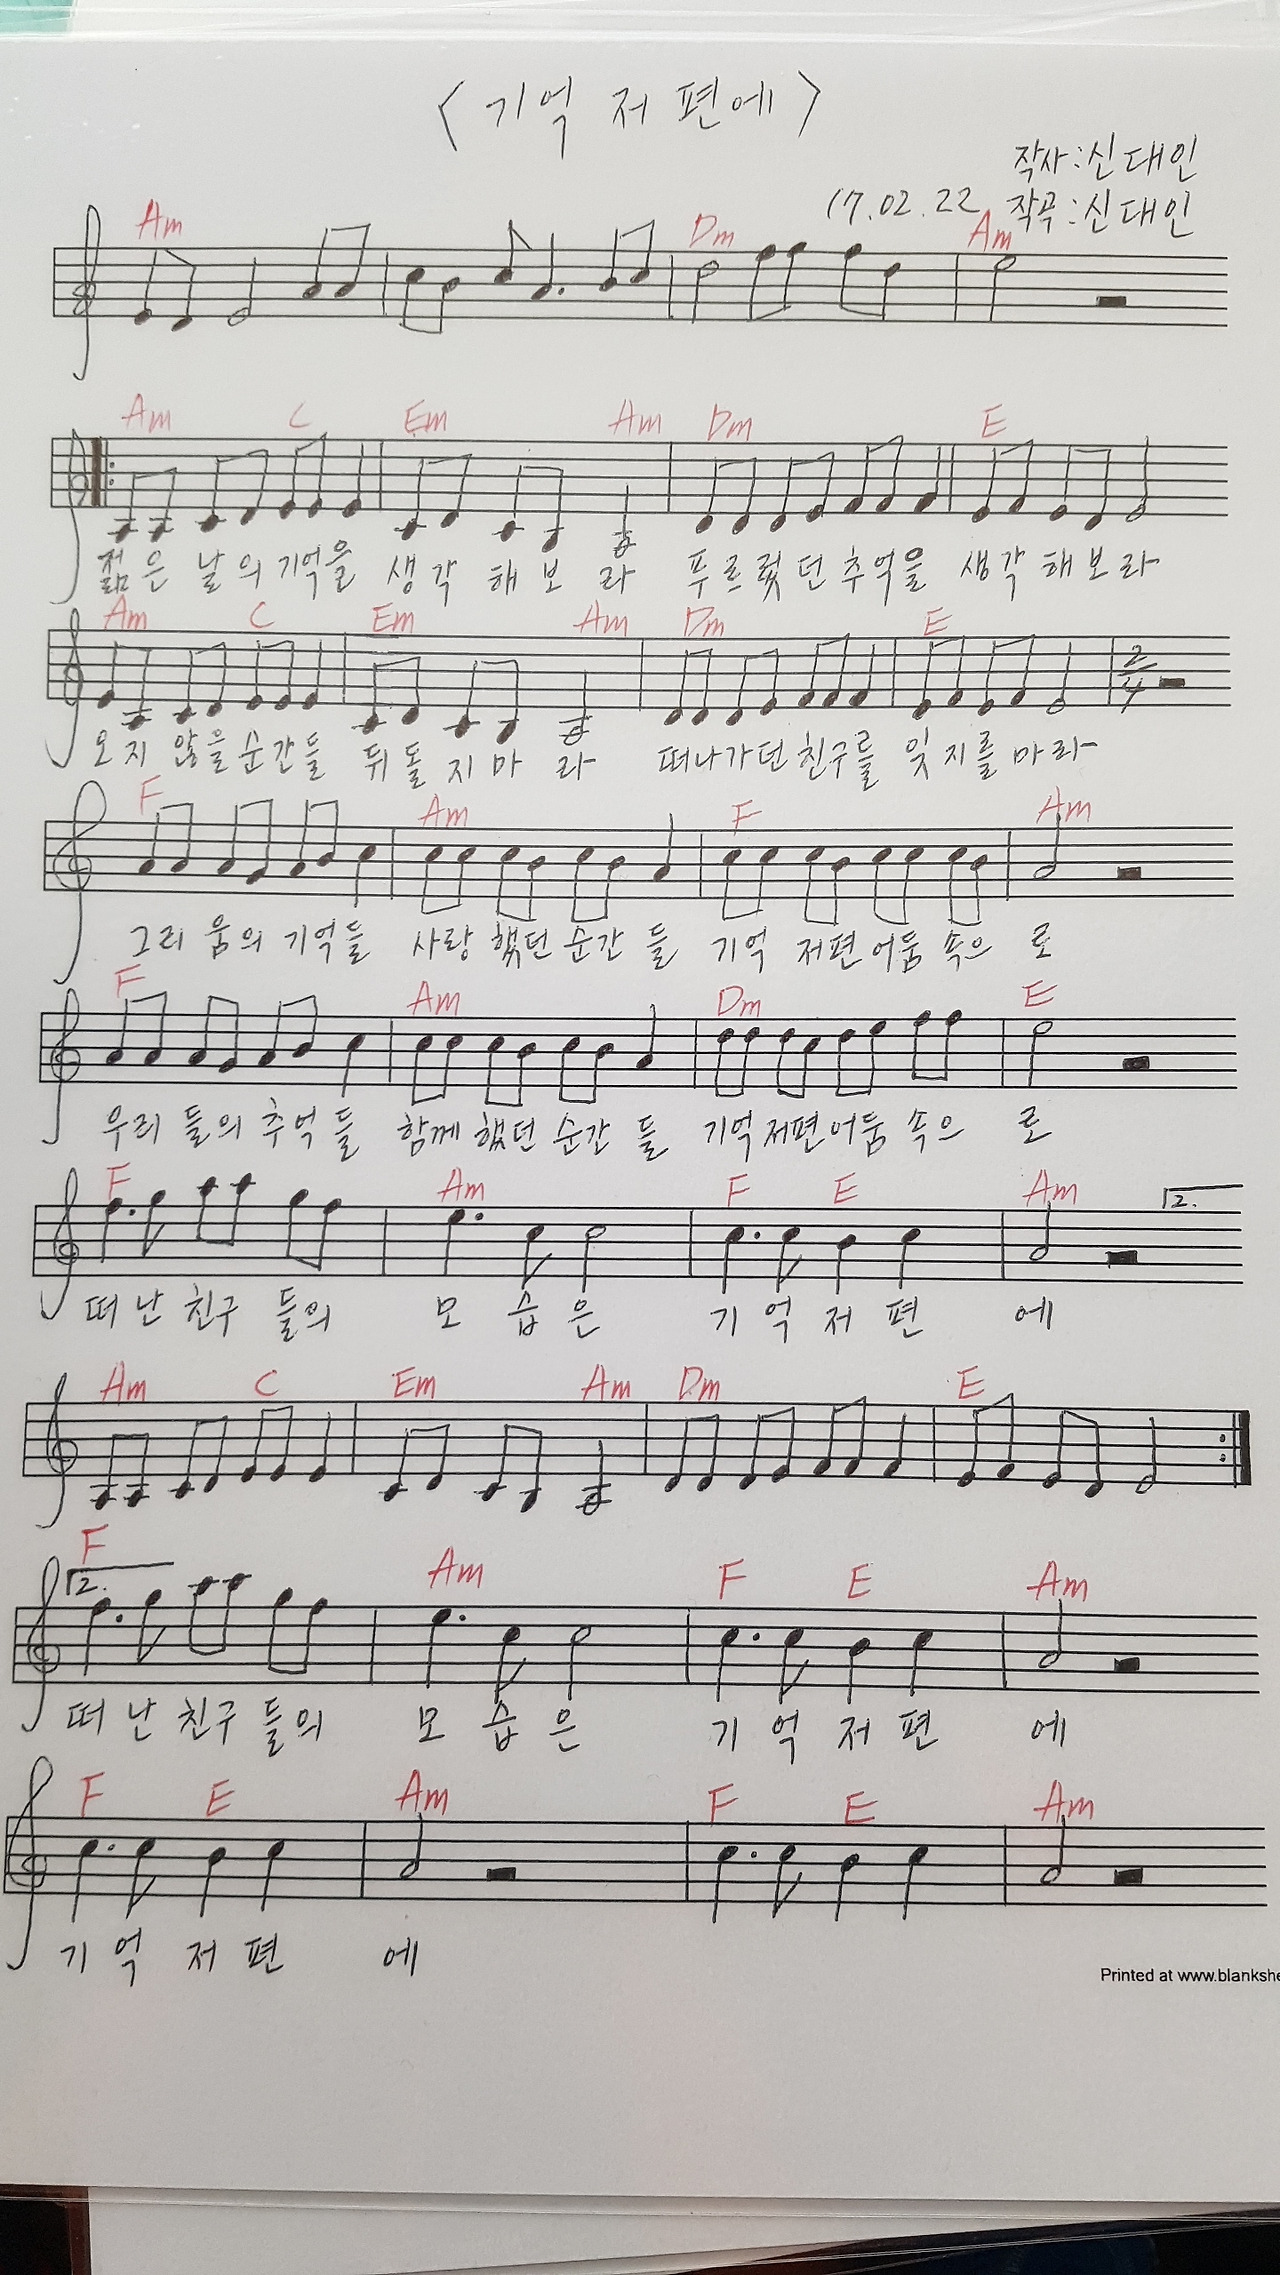 <기억 저편에>
작사:신대인
17.02.22 작곡:신대인
Am Dm Am
Am C Em Am Dm E
젊은 날의 기억을 생각 해보라 푸르렀던 추억을 생각 해보라
Am C Em Am Dm E
2/4
오지 않을 순간들 뒤돌지마라 떠나가던 친구를 잊지를마라
F Am F Am
그리움의 기억들 사랑했던 순간들 기억 저편어둠속으로
F Am Dm E
우리들의 추억들 함께했던 순간들 기억저편어둠속으로
F Am F E Am
2.
떠난 친구들의 모습은 기억저편에
Am C Em Am Dm E
F Am F E Am
2.
떠난 친구들의 모습은 기억저편에
F E Am F E Am
기억 저편에
Printed at www.blankshe